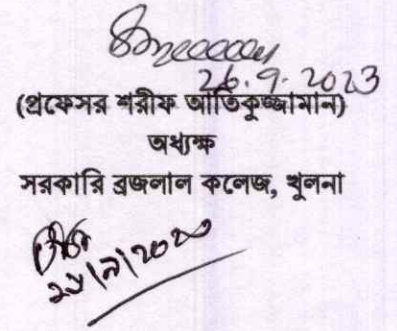 26.9.2023
(প্রফেসর শরীফ আতিকুজ্জামান)
অধ্যক্ষ
সরকারি ব্রজলাল কলেজ, খুলনা